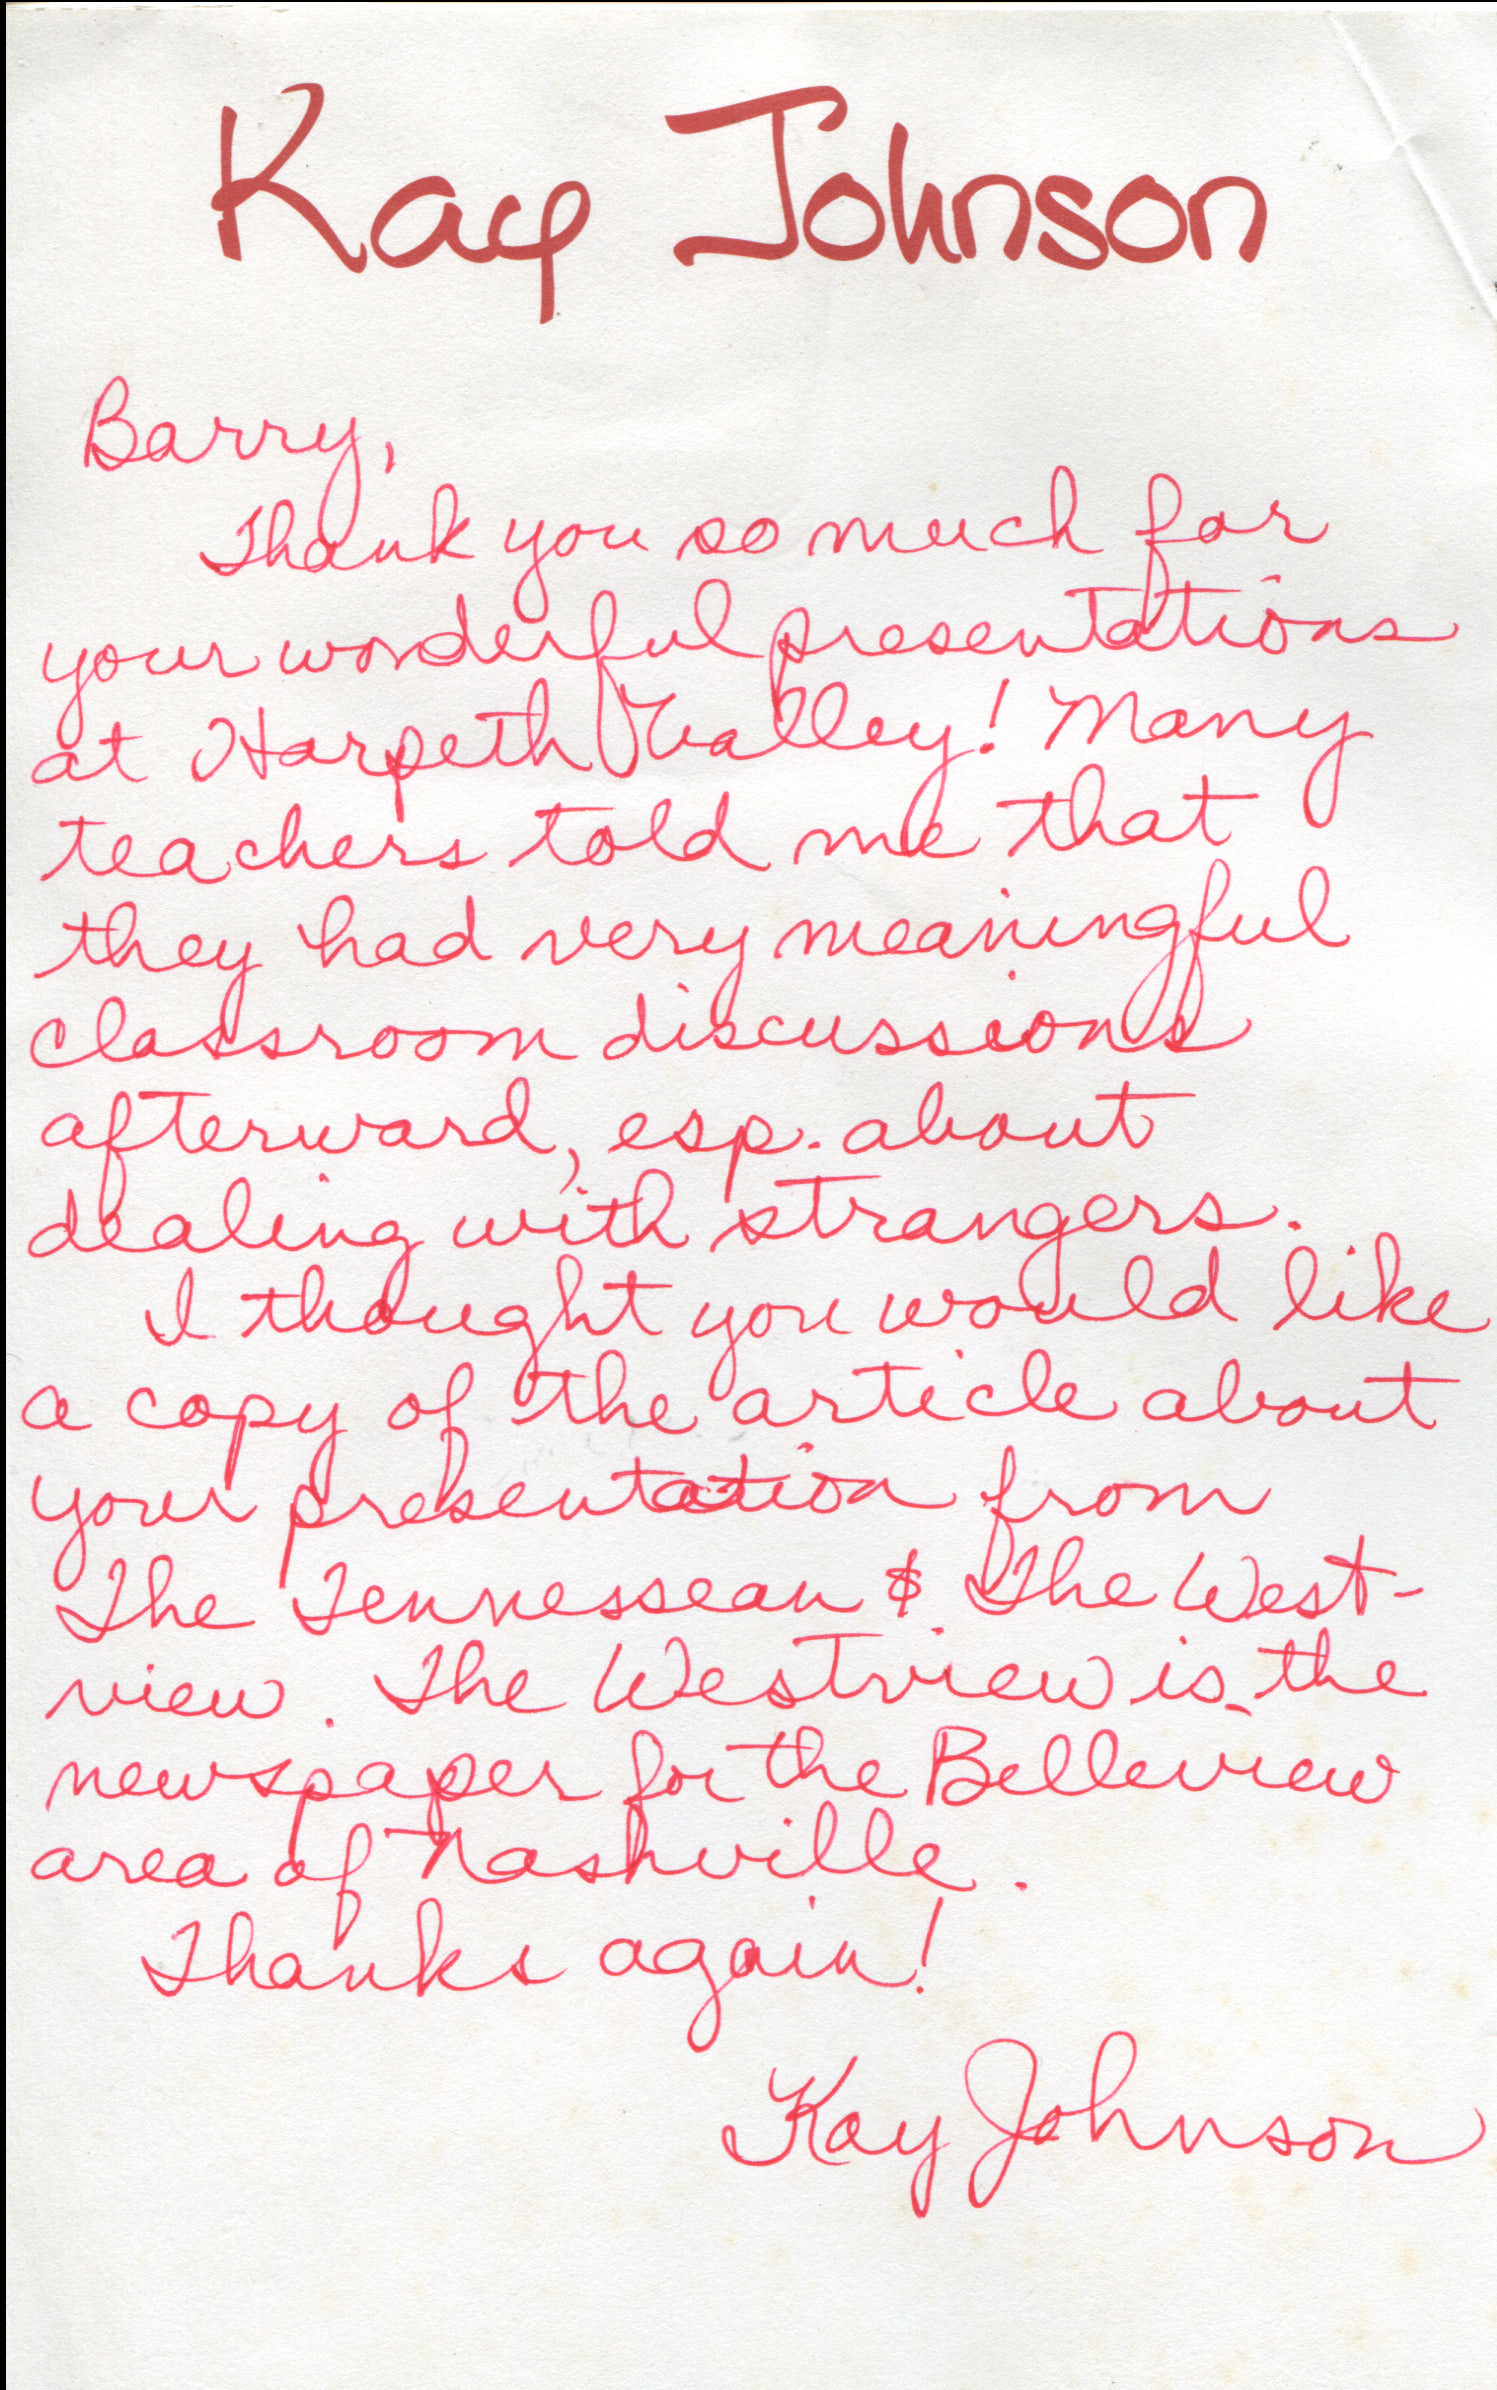 Kay Johnson
Barry,
Thank you so much for
your wonderful presentations
at Harpeth Valley! Many
teachers told me that
they had very meaningful
classroom discussions
afterward, esp. about
dealing with strangers.
I thought you would like
a copy of the article about
your presentation from
The Tennessean & The West-
view. The Westview is the
newspaper for the Belleview
area of Nashville.
Thanks again!
Kay Johnson